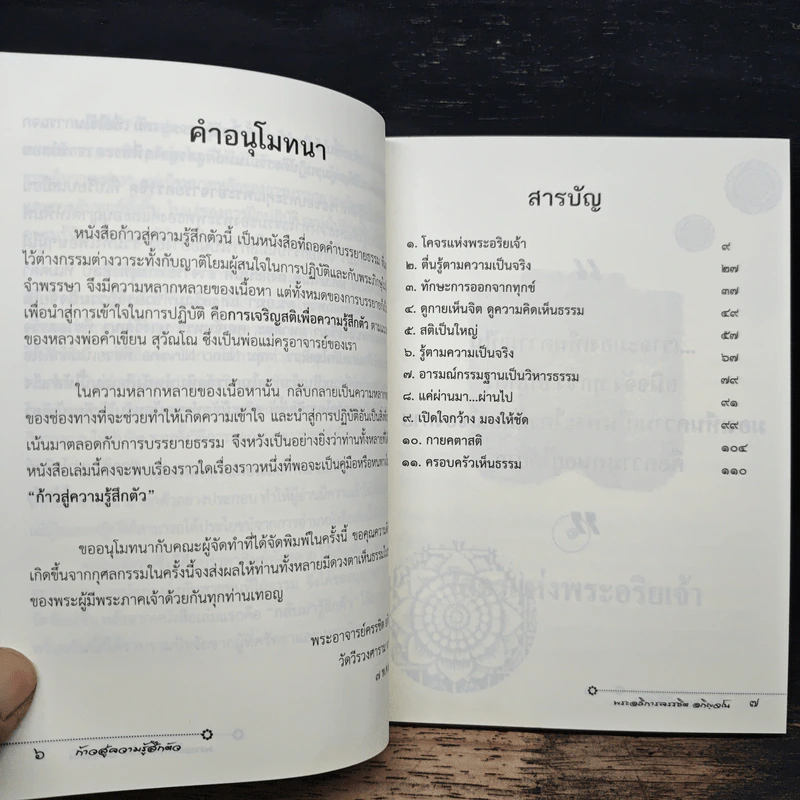 คำอนุโมทนา
หนังสือก้าวสู่ความรู้สึกตัวนี้ เป็นหนังสือที่ถอดคำบรรยายธรรม
ไว้ต่างกรรมต่างวาระทั้งกับญาติโยมผู้สนใจในการปฏิบัติและกับพระภิกษุ
จำพรรษา จึงมีความหลากหลายของเนื้อหา แต่ทั้งหมดของการบรรยาย
เพื่อนำสู่การเข้าใจในการปฏิบัติ คือการเจริญสติเพื่อความรู้สึกตัว
ของหลวงพ่อคำเขียน สุวัณโณ ซึ่งเป็นพ่อแม่ครูอาจารย์ของเรา
ในความหลากหลายของเนื้อหานั้น กลับกลายเป็นความหลาก
ของช่องทางที่จะช่วยทำให้เกิดความเข้าใจ และนำสู่การปฏิบัติอันเป็น
เน้นมาตลอดกับการบรรยายธรรม จึงหวังเป็นอย่างยิ่งว่าท่านทั้งหลาย
หนังสือเล่มนี้คงจะพบเรื่องราวใดเรื่องราวหนึ่งที่พอจะเป็นคู่มือหรือ
“ก้าวสู่ความรู้สึกตัว”
ขออนุโมทนากับคณะผู้จัดทำที่ได้จัดพิมพ์ในครั้งนี้ ขอคุณความ
เกิดขึ้นจากกุศลกรรมในครั้งนี้จงส่งผลให้ท่านทั้งหลายมีดวงตาเห็นธรรม
ของพระผู้มีพระภาคเจ้าด้วยกันทุกท่านเทอญ
พระอาจารย์ครรชิต
วัดวีรวงศาราม
๗
๖ ก้าวสู่ความรู้สึกตัว
สารบัญ
๑. โคจรแห่งพระอริยเจ้า ๙
๒. ตื่นรู้ตามความเป็นจริง ๒๗
๓. ทักษะการออกจากทุกข์ ๓๗
๔. ดูกายเห็นจิต ดูความคิดเห็นธรรม ๔๙
๕. สติเป็นใหญ่ ๕๗
๖. รู้ตามความเป็นจริง ๖๗
๗. อารมณ์กรรมฐานเป็นวิหารธรรม ๗๙
๘. แค่ผ่านมา...ผ่านไป ๙๑
๙. เปิดใจกว้าง มองให้ชัด ๙๙
๑๐. กายคตาสติ ๑๐๔
๑๑. ครอบครัวเห็นธรรม ๑๑๐
พระอธิการครรชิต อกิญจโน ๗